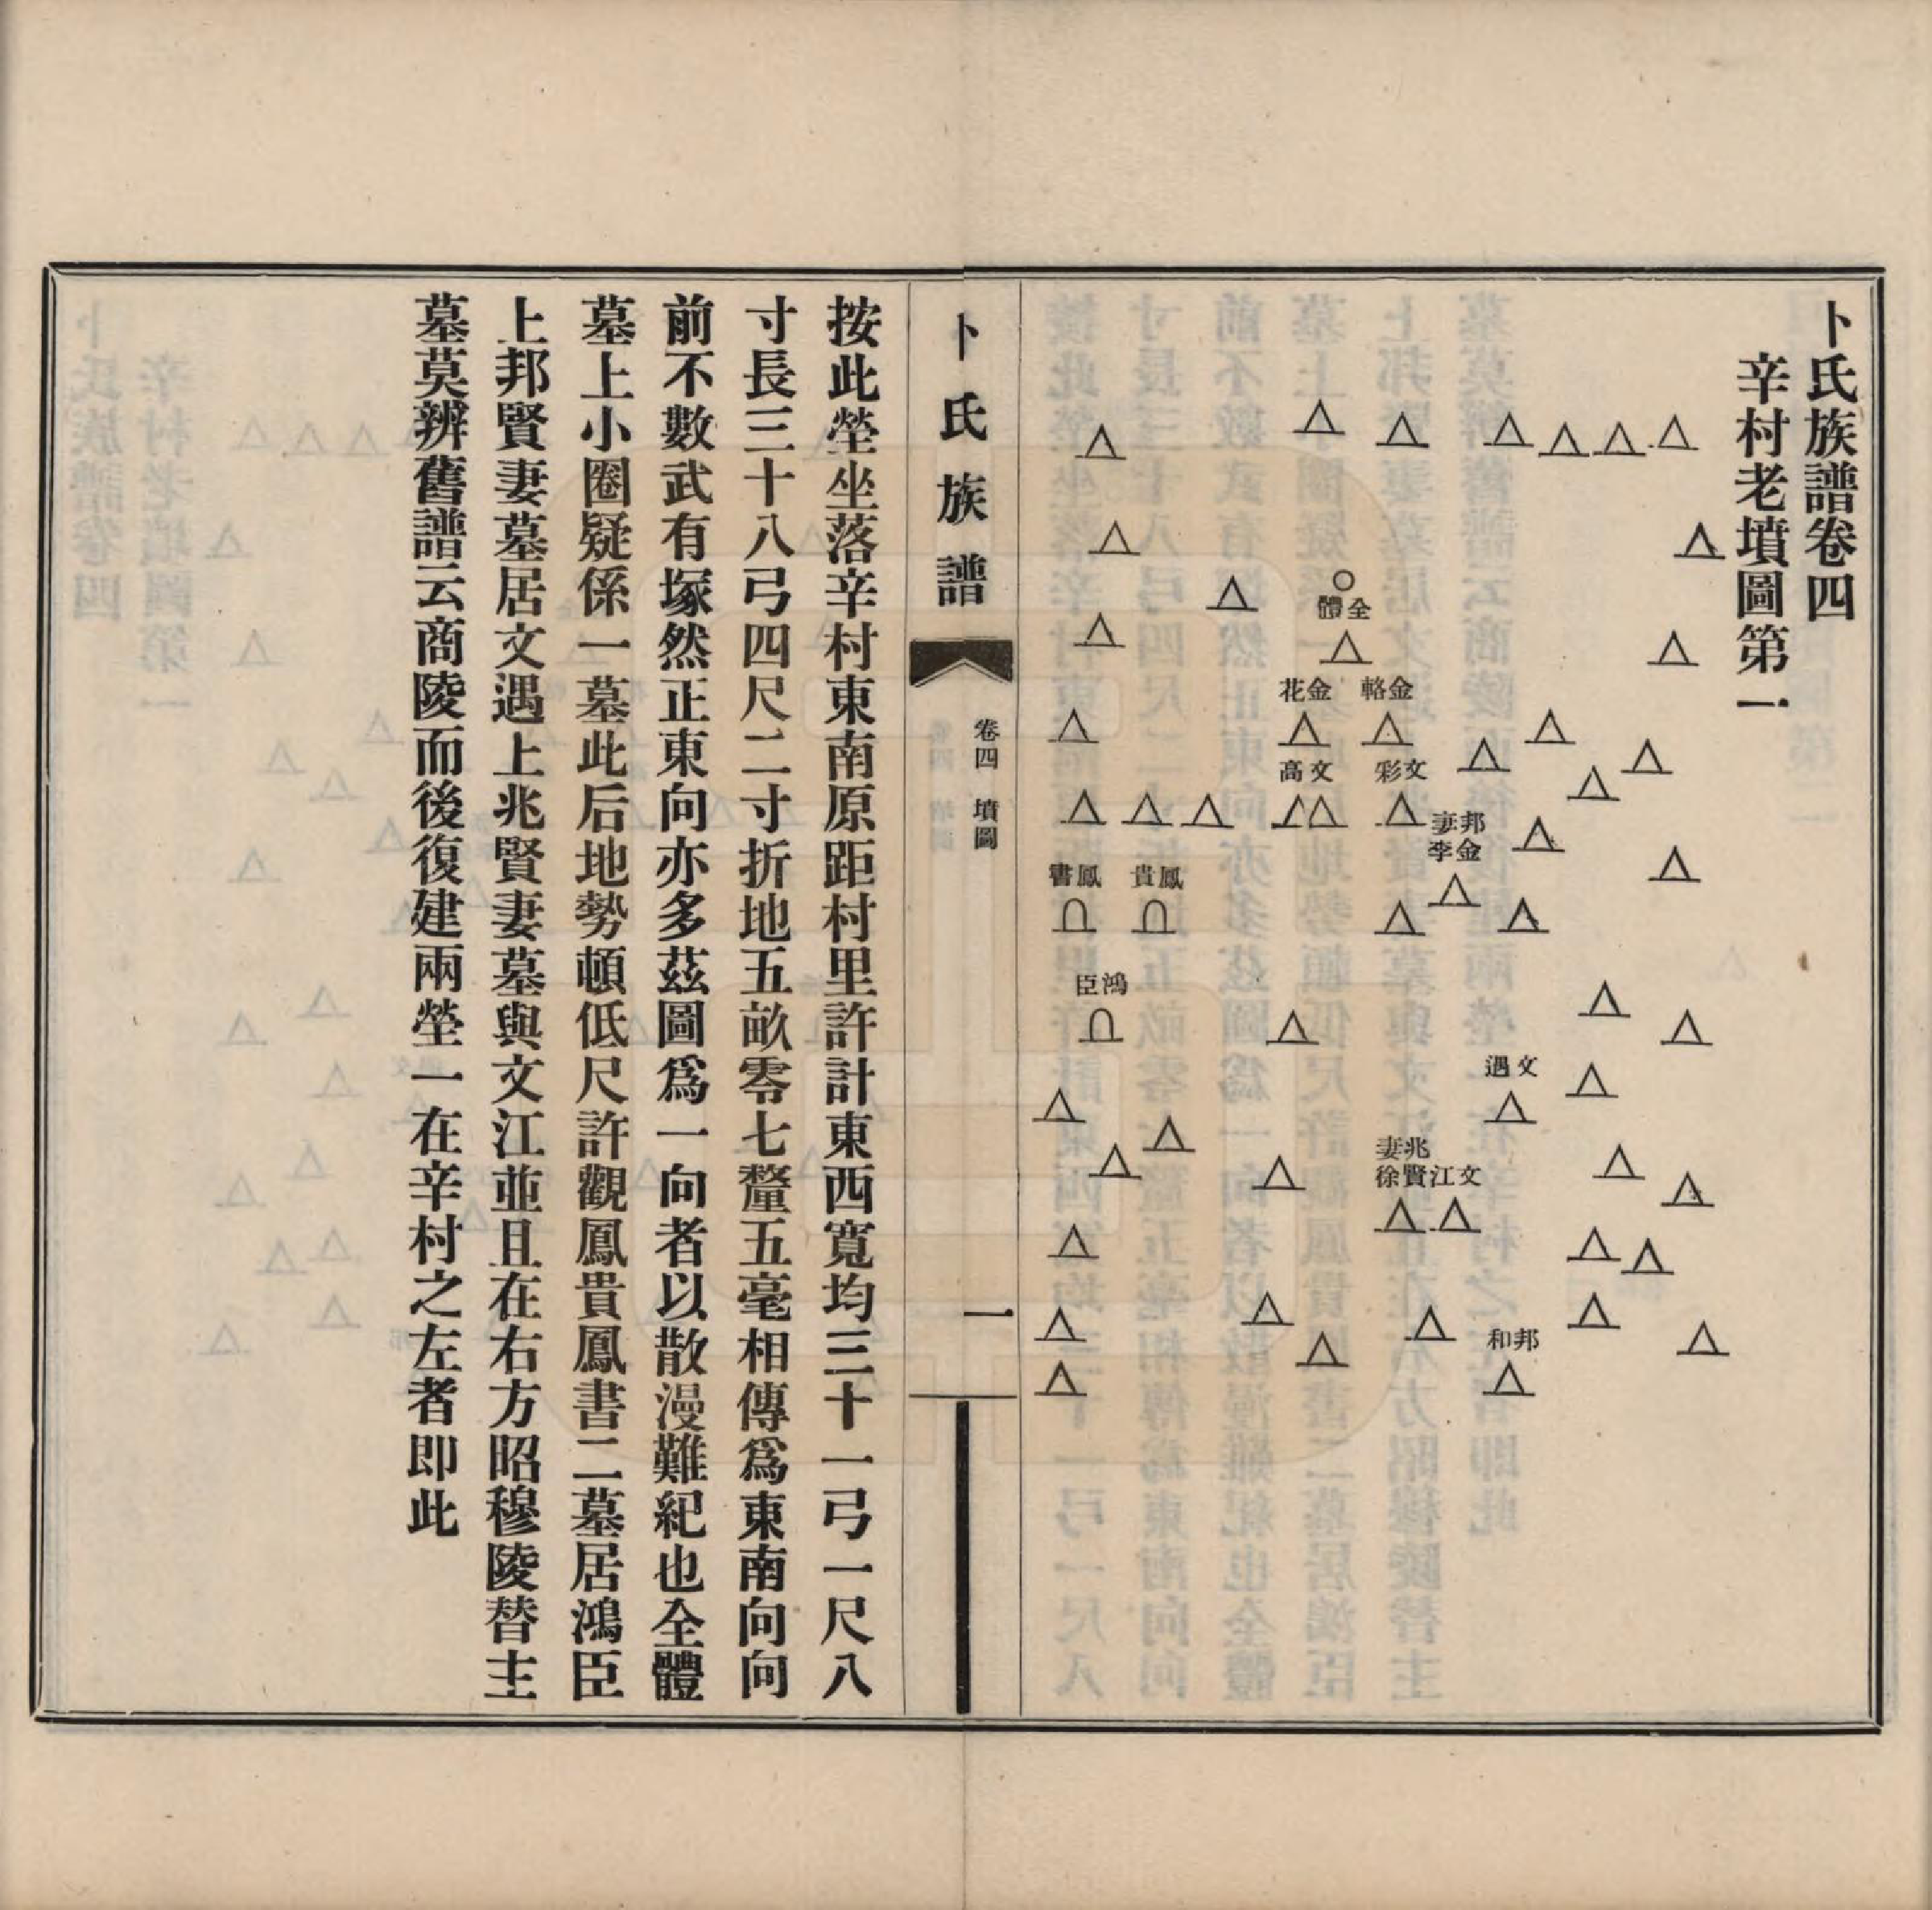 卜氏族譜卷四
辛村老墳圖第一
全體
金輅
金花
文彩
文高
邦妻
金李
鳳貴
鳳書
鴻臣
文遇
兆妻
文江賢徐
邦和
卜氏族譜
卷四 墳圖
一
按此塋坐落辛村東南原距村里許計東西寬均三十一弓一尺八
寸長三十八弓四尺二寸折地五畝零七釐五毫相傳爲東南向向
前不數武有塚然正東向亦多茲圖爲一向者以散漫難紀也全體
墓上小圈疑係一墓此后地勢頓低尺許觀鳳貴鳳書二墓居鴻臣
上邦賢妻墓居文遇上兆賢妻墓與文江並且在右方昭穆陵替主
墓莫辨舊譜云商陵而後復建兩塋一在辛村之左者即此